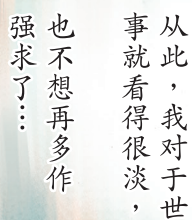 从此，我对于世
事就看得很淡，
也不想再多作
强求了…